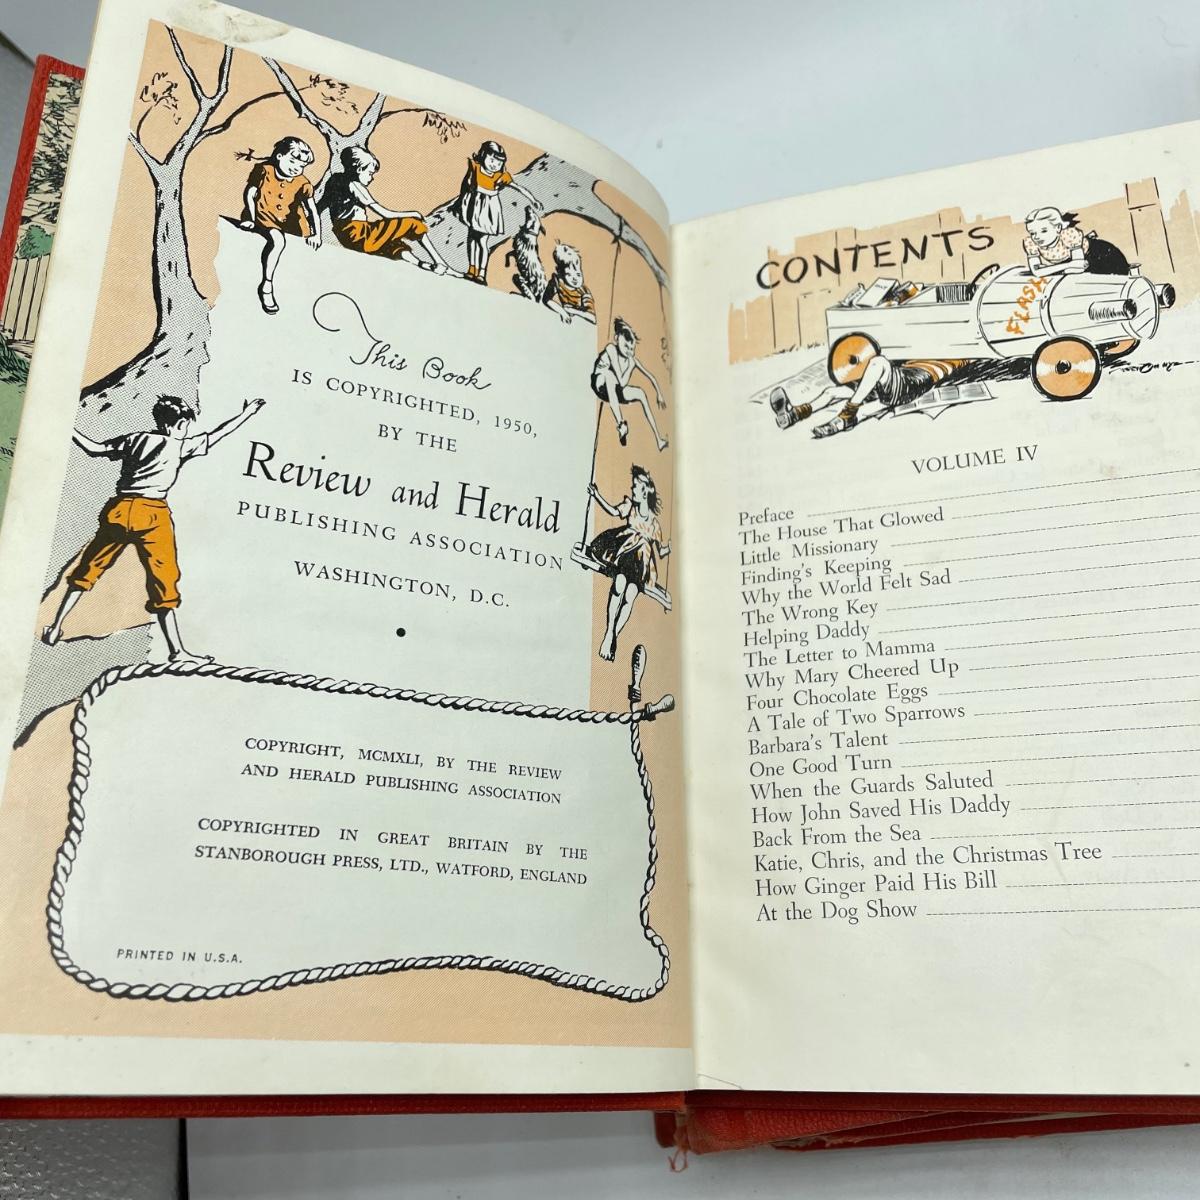 This Book
IS COPYRIGHTED, 1950,
BY THE
Review and Herald
PUBLISHING ASSOCIATION
WASHINGTON, D.C.
COPYRIGHT, MCMXLI, BY THE REVIEW
AND HERALD PUBLISHING ASSOCIATION
COPYRIGHTED IN GREAT BRITAIN BY THE
STANBOROUGH PRESS, LTD., WATFORD, ENGLAND
PRINTED IN U.S.A.
CONTENTS
FLASH
VOLUME IV
Preface
The House That Glowed
Little Missionary
Finding's Keeping
Why the World Felt Sad
The Wrong Key
Helping Daddy
The Letter to Mamma
Why Mary Cheered Up
Four Chocolate Eggs
A Tale of Two Sparrows
Barbara's Talent
One Good Turn
When the Guards Saluted
How John Saved His Daddy
Back From the Sea
Katie, Chris, and the Christmas Tree
How Ginger Paid His Bill
At the Dog Show